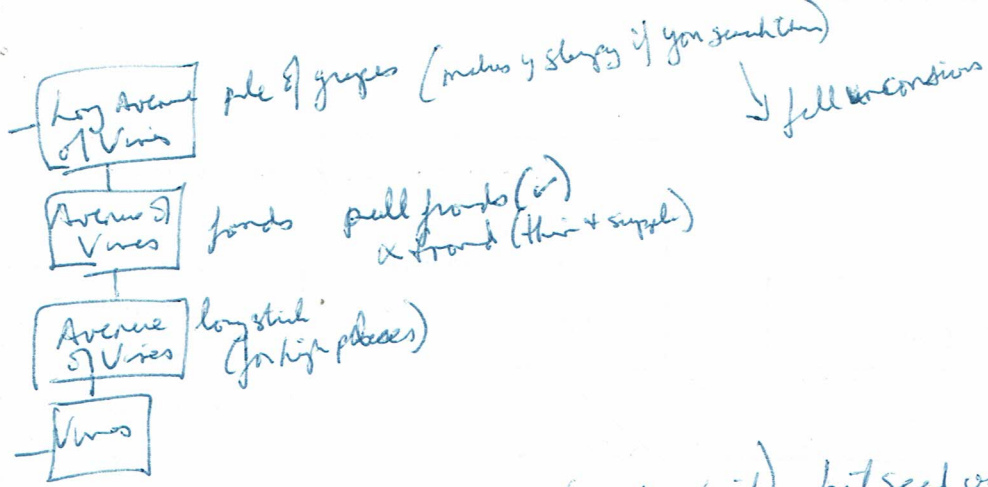 Long Avenue
of Vines
pile of grapes (makes y sleepy if you search them)
fall unconscious
Avenue of
Vines
fronds pull fronds (✓)
frond (thin + supple)
Avenue
of Vines
long stick
(for high places)
Vines